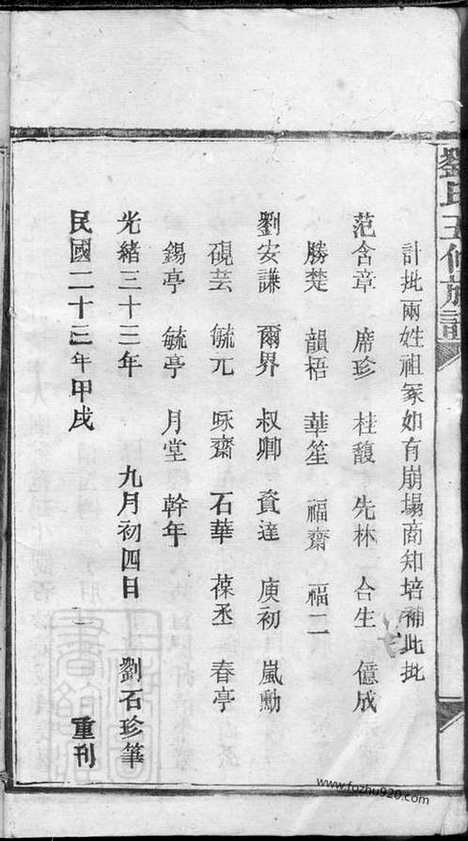 劉氏五修族譜
計批兩姓祖冢如有崩塌商知培補此批
范含章 席珍 桂馥 先林 合生 億成
勝楚 韻梧 華笙 福齋 福二
劉安謙 爾界 叔卿 資達 庚初 嵐勳
硯芸 毓元 咏齋 石華 葆丞 春亭
錫亭 毓亭 月堂 幹年
光緒三十三年 九月初四日 劉石珍筆
民國二十三年甲戌 重刊
www.fozhu920.com